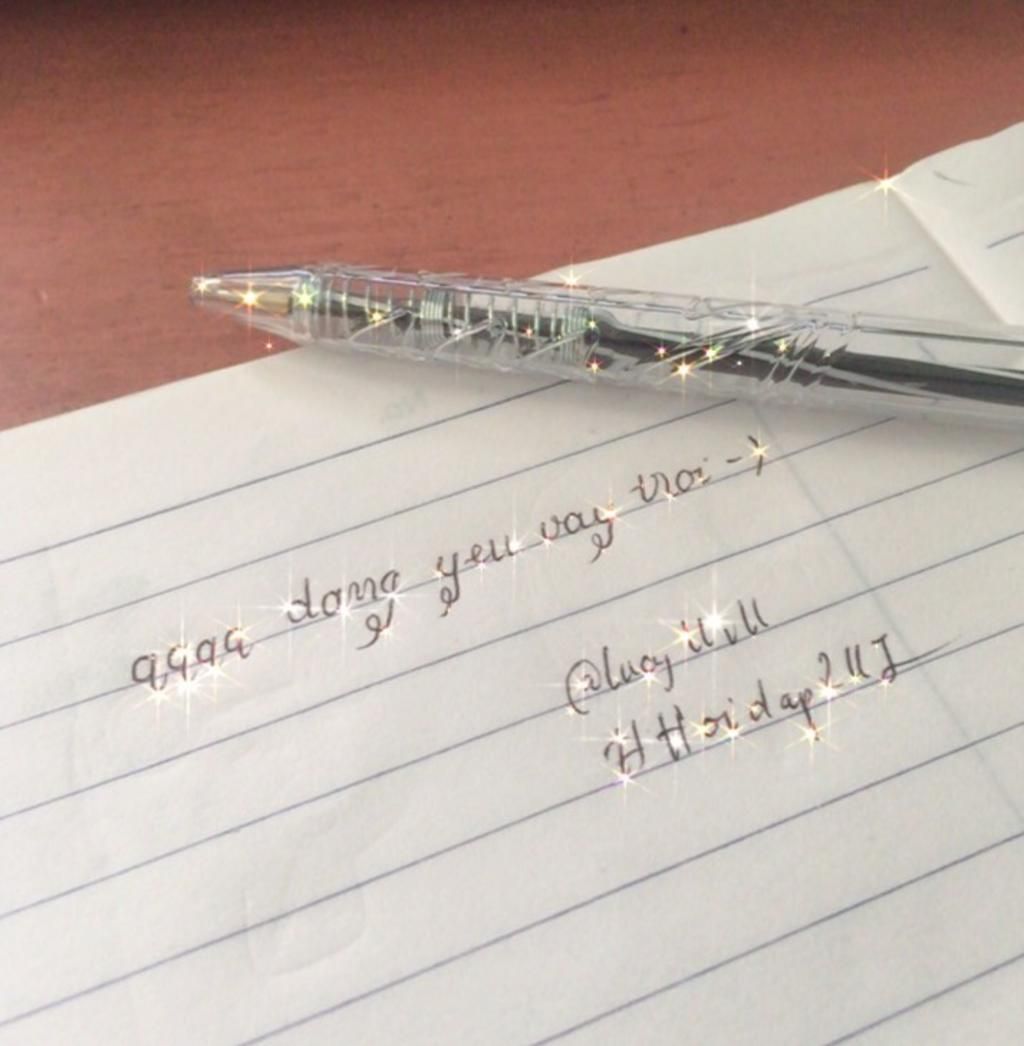 qqqq dang yeu vay troi ->
@lucyitvll
#Hoidap247